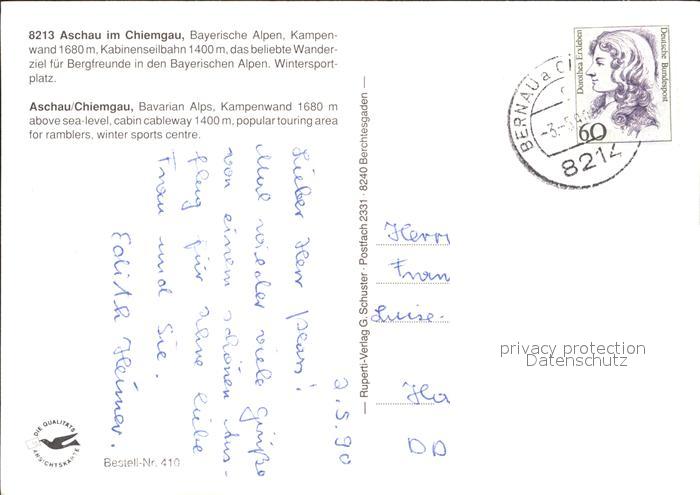 8213 Aschau im Chiemgau, Bayerische Alpen, Kampen-
wand 1680 m, Kabinenseilbahn 1400 m, das beliebte Wander-
ziel für Bergfreunde in den Bayerischen Alpen. Wintersport-
platz.
Aschau/Chiemgau, Bavarian Alps, Kampenwand 1680 m
above sea-level, cabin cableway 1400 m, popular touring area
for ramblers, winter sports centre.
2.5.90
Lieber Herr
Mal wieder viele Grüße
von einem schönen Aus-
flug für Ihre liebe
Frau und Sie.
Edith Heimer.
DIE QUALITÄTS
ANSICHTSKARTE
Bestell-Nr. 410
Ruperti-Verlag G. Schuster · Postfach 2331 · 8240 Berchtesgaden
Dorothea Erxleben
Deutsche Bundespost
60
BERNAU a
8214
Herrn
Frau
Luise-
Ha
DD
privacy protection
Datenschutz